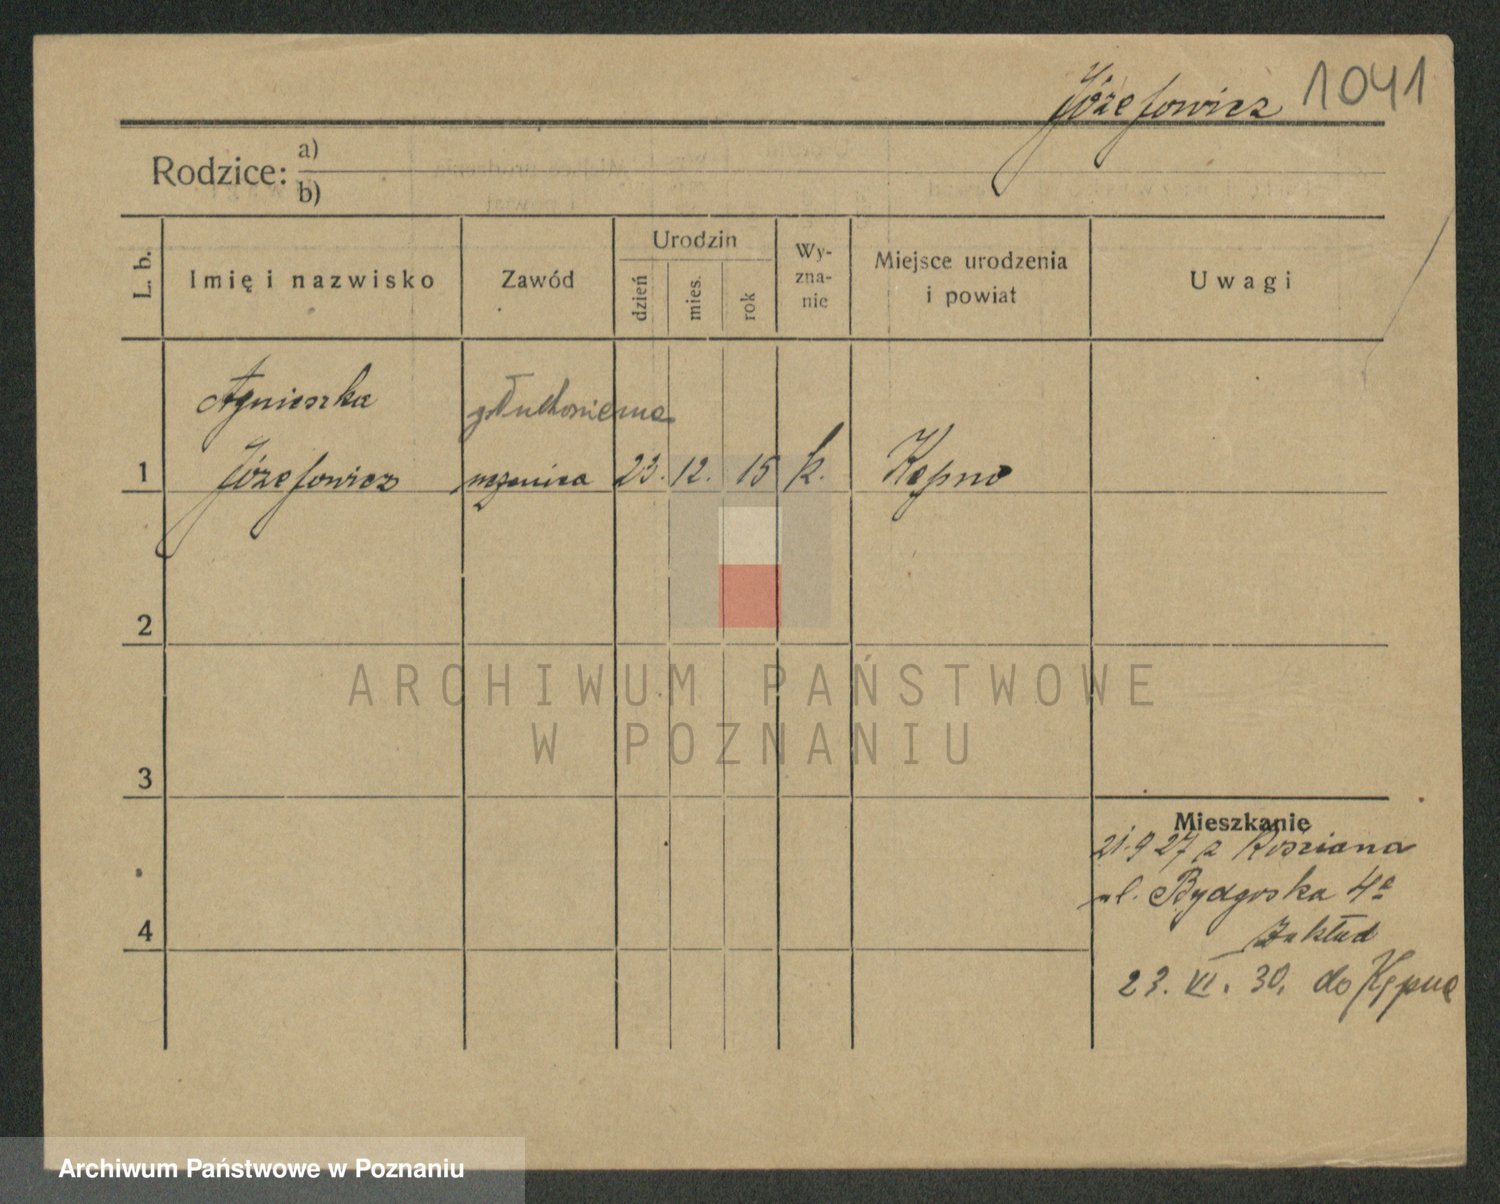 Józefowicz 1041
Rodzice: a)
b)
L. b.
Imię i nazwisko
Zawód
Urodzin
dzień
mies.
rok
Wy-
zna-
nie
Miejsce urodzenia
i powiat
Uwagi
Agnieszka głuchoniema
1 Józefowicz uczenica 23. 12. 15 k. Kępno
2
ARCHIWUM PAŃSTWOWE
W POZNANIU
3
Mieszkanie
21.9 27 z Kościana
ul. Bydgoska 4a
4 Zakład
23. VI. 30. do Kępna
Archiwum Państwowe w Poznaniu